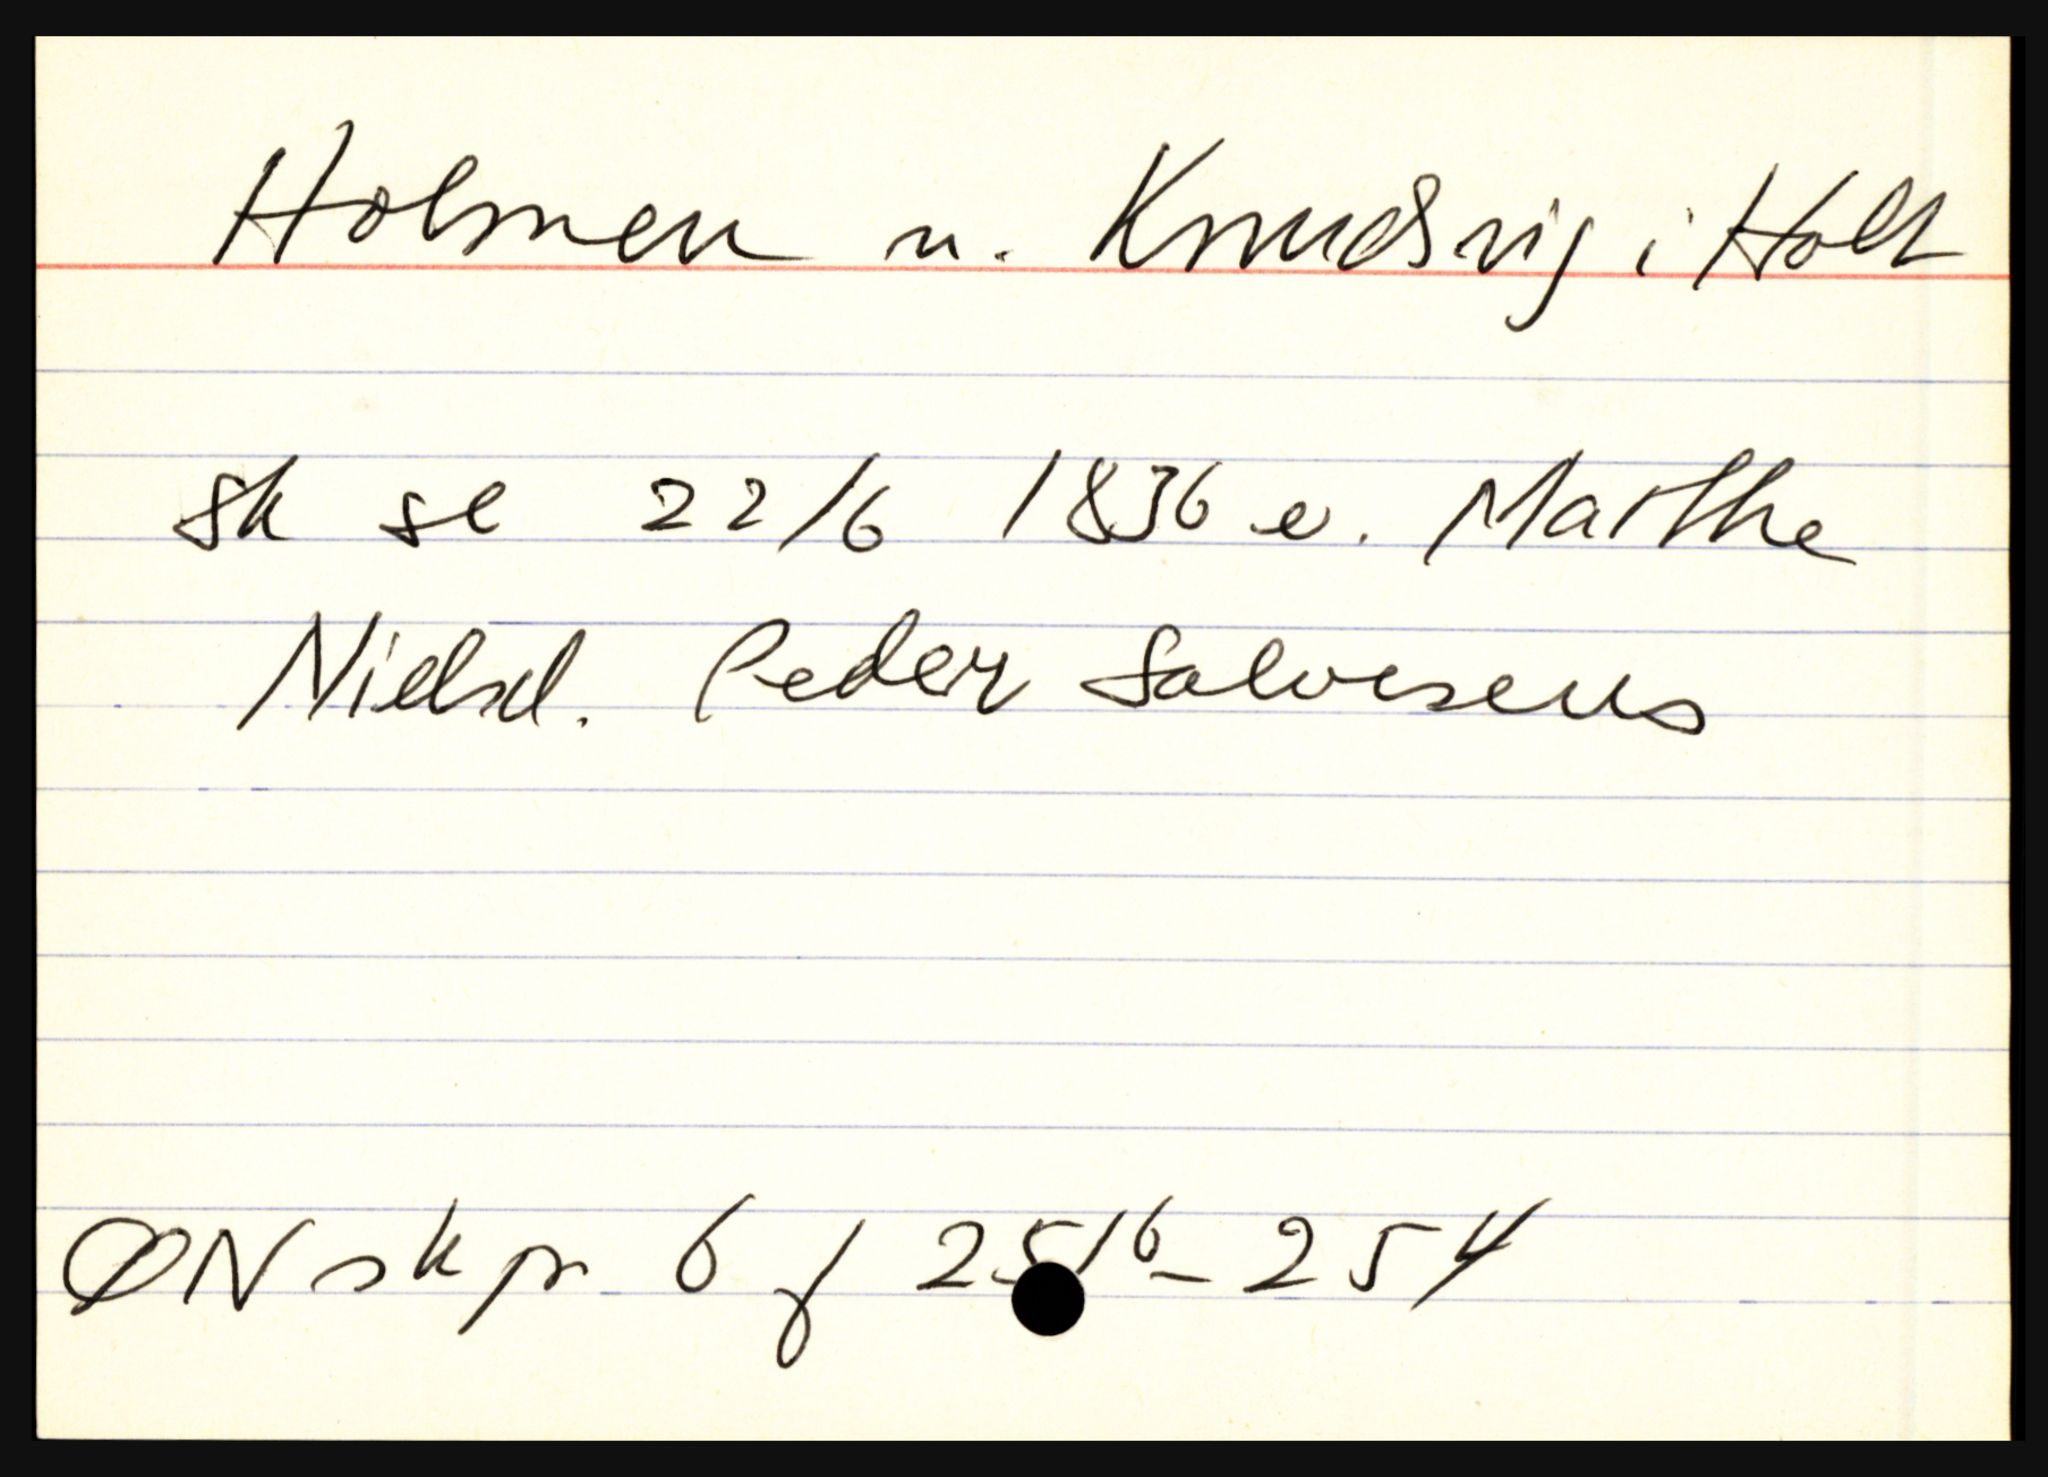 Holmen u. Knudsvig i Holt
sk se 22/6 1836 e. Marthe
Nielsd. Peder Salvesens
ØN skpr 6 f 251b - 254